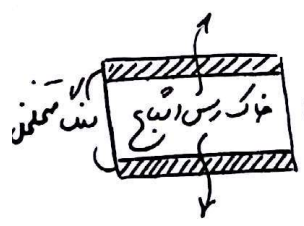 خاک رس اشباع
سنگ متخلخل